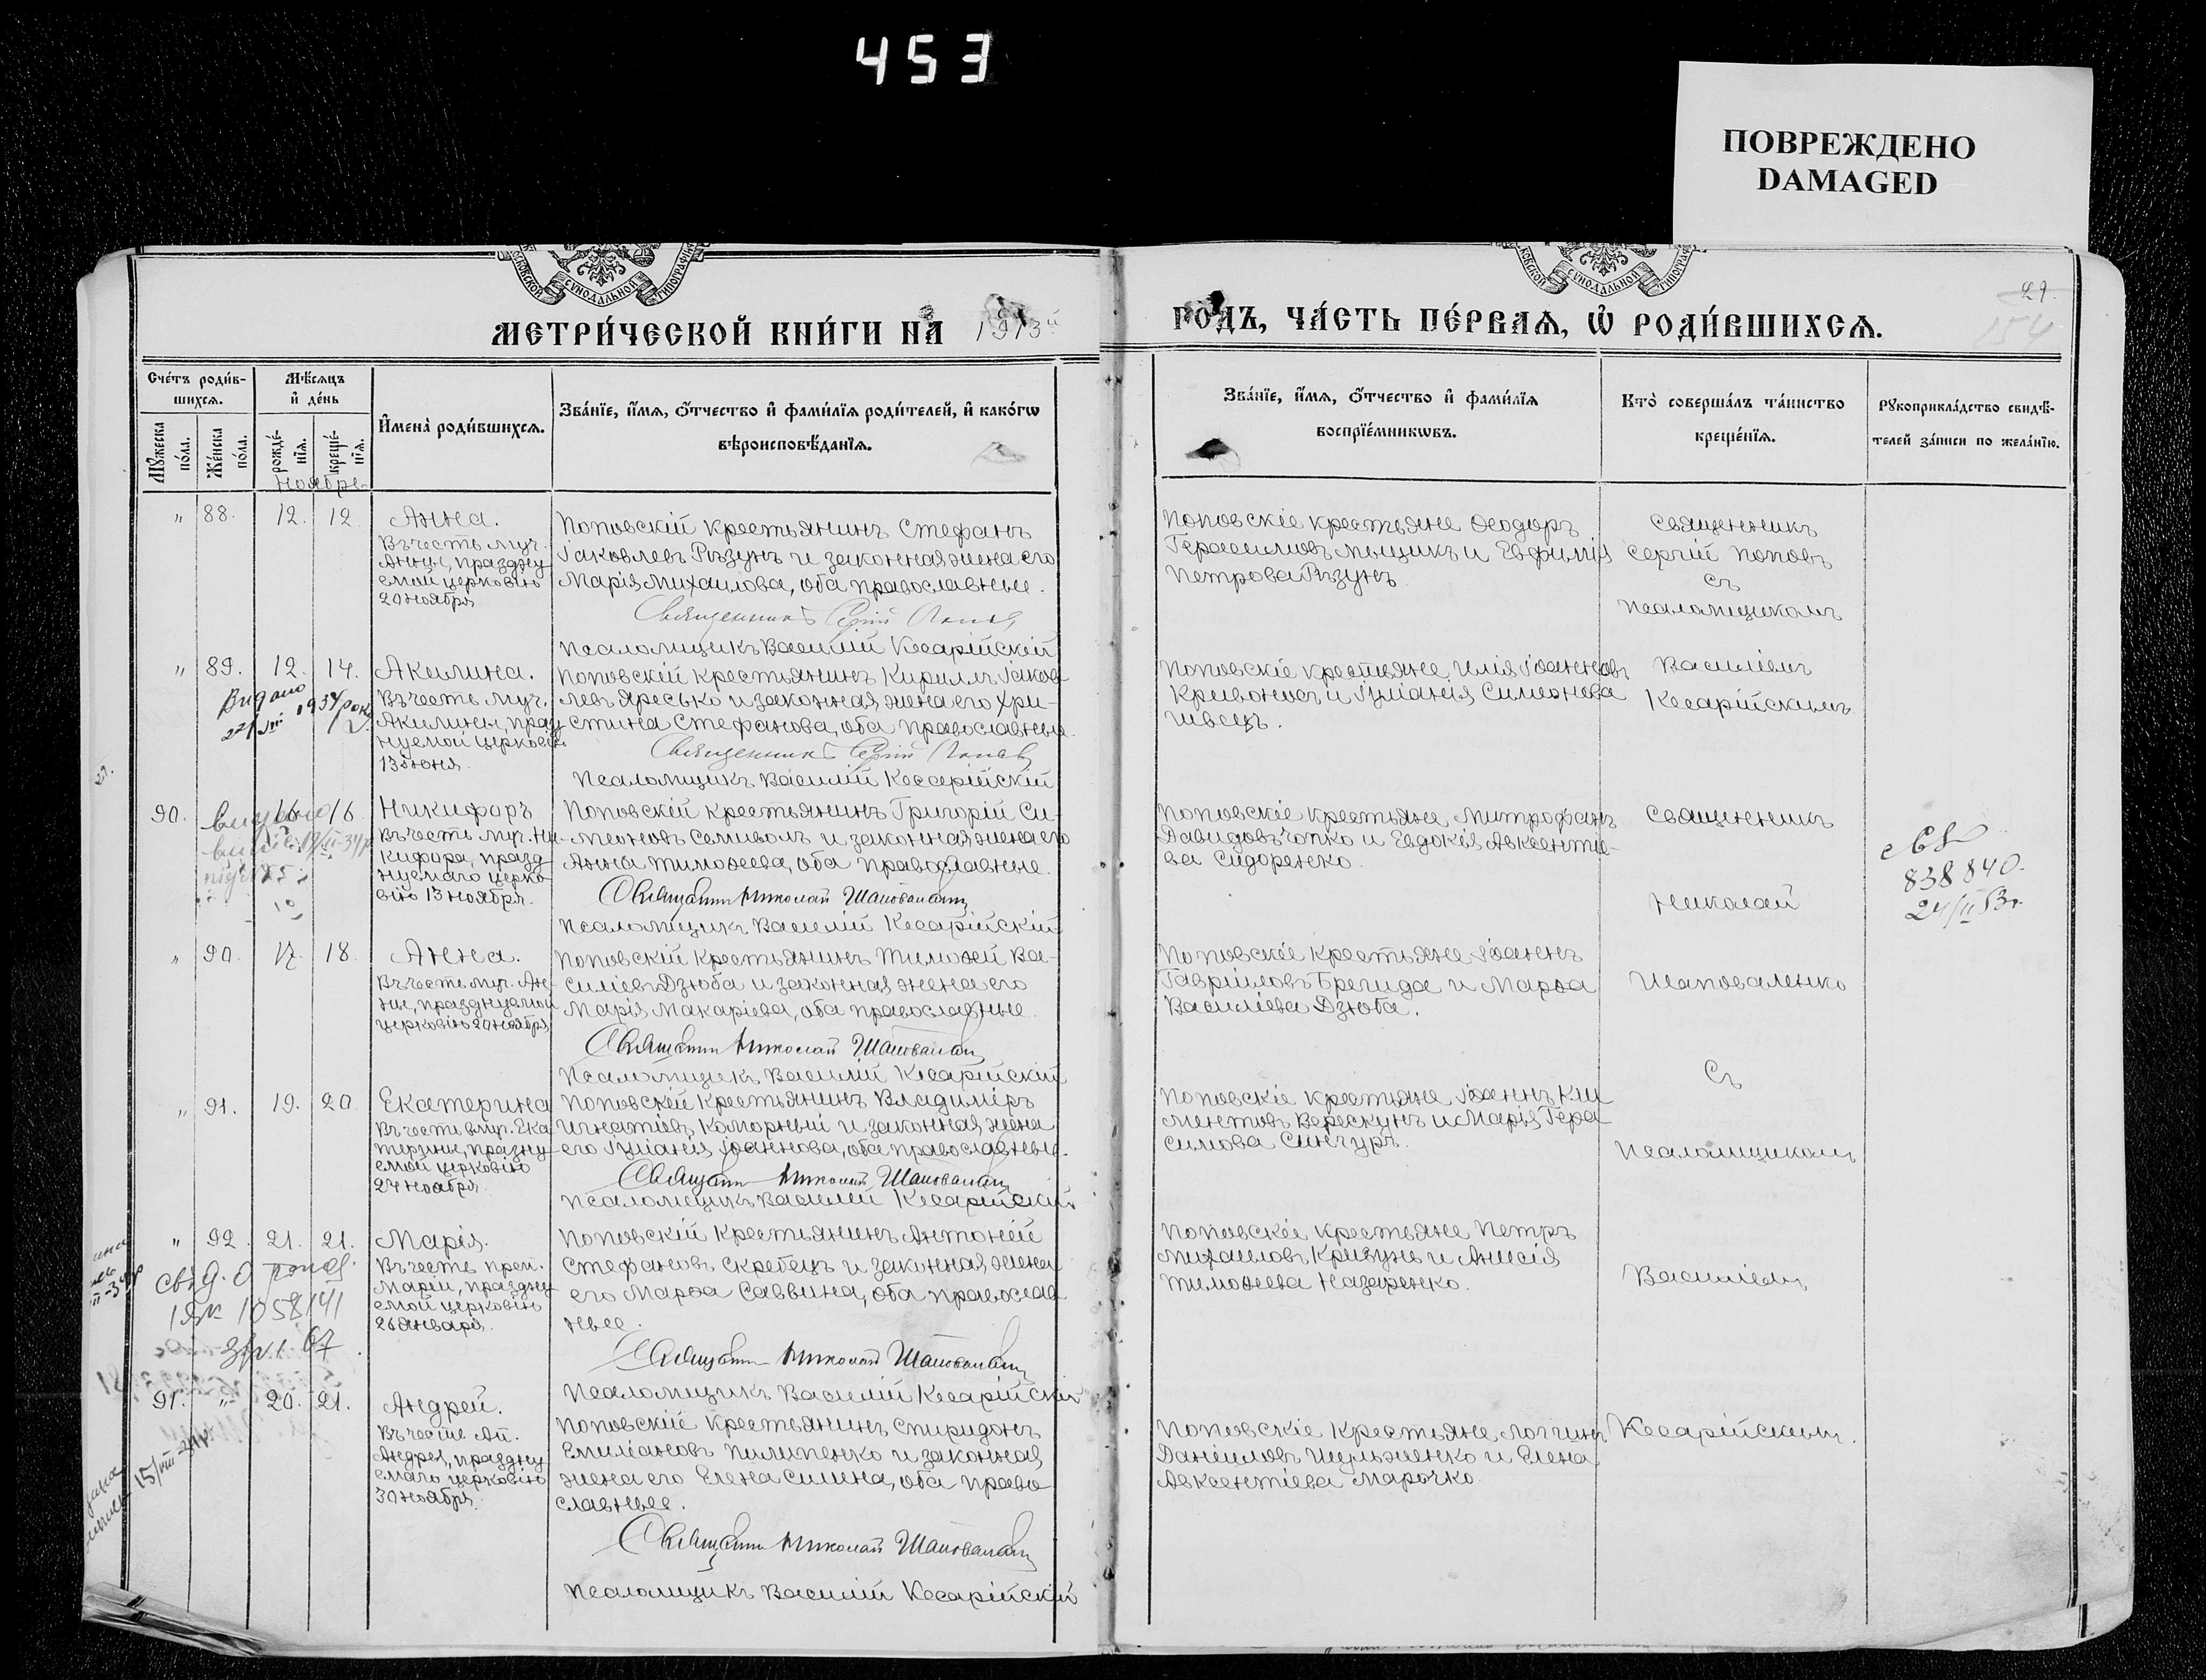 453
ПОВРЕЖДЕНО
DAMAGED
МЕТРИ́ЧЕСКОЙ КНИ́ГИ НА 1913й
ГО́ДЪ, ЧА́СТЬ ПЕ́РВАЯ, Ѡ РОДИ́ВШИХСЯ.
29.
154
Сче́тъ роди́в-
шихся.
Мѣ́сяцъ
и де́нь
Имена̀ роди́вшихся.
Зва́нїе, и́мя, о́тчество и фами́лїя роди́телей, и како́гѡ
вѣроисповѣ́данїя.
Му́жеска
по́ла.
Же́нска
по́ла.
рожде́-
нїя.
креще́-
нїя.
Ноябрь
Зва́нїе, и́мя, о́тчество и фами́лїя
воспрїе́мникѡвъ.
Кто̀ соверша́лъ та́инство
креще́нїя.
Рукоприкла́дство свидѣ́-
телей за́писи по жела́нїю.
" 88. 12. 12 Анна.
Въ честь муч.
Анны, праздну
емой церковію
20 ноября
Поповскій крестьянинъ Стефанъ
Іаковлевъ Рѣзунъ и законная жена его
Марія Михаилова, оба православные.
Священникъ Сергій Поповъ
Псаломщикъ Василій Кесарійскій
Поповскіе крестьяне Ѳеодоръ
Герасимовъ Мыщикъ и Евфимія
Петрова Рѣзунъ.
Священникъ
Сергій Поповъ
съ
Псаломщикомъ
" 89. 12. 14. Акилина.
Видано
1934 року
Въ честь муч.
Акилины, празд
нуемой церковію
13 іюня.
Поповскій крестьянинъ Кириллъ Іаков
левъ Яресько и законная жена его Хри-
стина Стефанова, оба православные.
Священникъ Сергій Поповъ
Псаломщикъ Василій Кесарійскій
Поповскіе крестьяне Илія Іоанновъ
Кривоносъ и Іуліанія Симеонова
Швецъ.
Василіемъ
Кесарійскимъ.
90. 16 16 Никифоръ
Въ честь муч. Ни-
кифора, празд
нуемаго церко
вію 13 ноября.
Поповскій крестьянинъ Григорій Си-
меоновъ Селиволъ и законная жена его
Анна Тимоѳеева, оба православные.
Священникъ Николай Шаповаленко
Псаломщикъ Василій Кесарійскій
Поповскіе крестьяне Митрофанъ
Давидовъ Чопко и Евдокія Авксентіе-
ва Сидоренко.
Священникъ
Николай
838840.
" 90. 17. 18. Анна.
Въ честь муч. Ан-
ны, празднуемой
церковію 20 ноября
Поповскій крестьянинъ Тимоѳей Ва-
силіевъ Дзюба и законная жена его
Марія Макаріева, оба православные.
Священникъ Николай Шаповаленко
Псаломщикъ Василій Кесарійскій
Поповскіе крестьяне Іоаннъ
Гавріиловъ Брегида и Марѳа
Василіева Дзюба.
Шаповаленко
Съ
" 91. 19. 20 Екатерина
Въ честь влмуч. Ека
терины, праздну
емой церковію
24 ноября.
Поповскій крестьянинъ Владиміръ
Игнатіевъ Коморный и законная жена
его Іуліанія Іоаннова, оба православные.
Священникъ Николай Шаповаленко
Псаломщикъ Василій Кесарійскій
Поповскіе крестьяне Іоаннъ Кли
ментовъ Верескунъ и Марія Гера
симова Синчуръ.
Псаломщикомъ
" 92. 21. 21. Марія.
Въ честь преп.
Маріи, праздну
емой церковію
26 января.
Поповскій крестьянинъ Антоній
Стефановъ Скребецъ и законная жена
его Марѳа Саввина, оба православ
ные.
Священникъ Николай Шаповаленко
Псаломщикъ Василій Кесарійскій
Поповскіе крестьяне Петръ
Михаиловъ Кривунъ и Анисія
Тимоѳеева Назаренко.
Василіемъ
91. " 20. 21. Андрей.
Въ честь ап.
Андрея, праздну
емаго церковію
30 ноября.
Поповскій крестьянинъ Спиридонъ
Емиліановъ Пилипенко и законная
жена его Елена Силина, оба право
славные.
Священникъ Николай Шаповаленко
Псаломщикъ Василій Кесарійскій
Поповскіе крестьяне Логгинъ
Даніиловъ Шульженко и Елена
Авксентіева Марочко.
Кесарійскимъ.